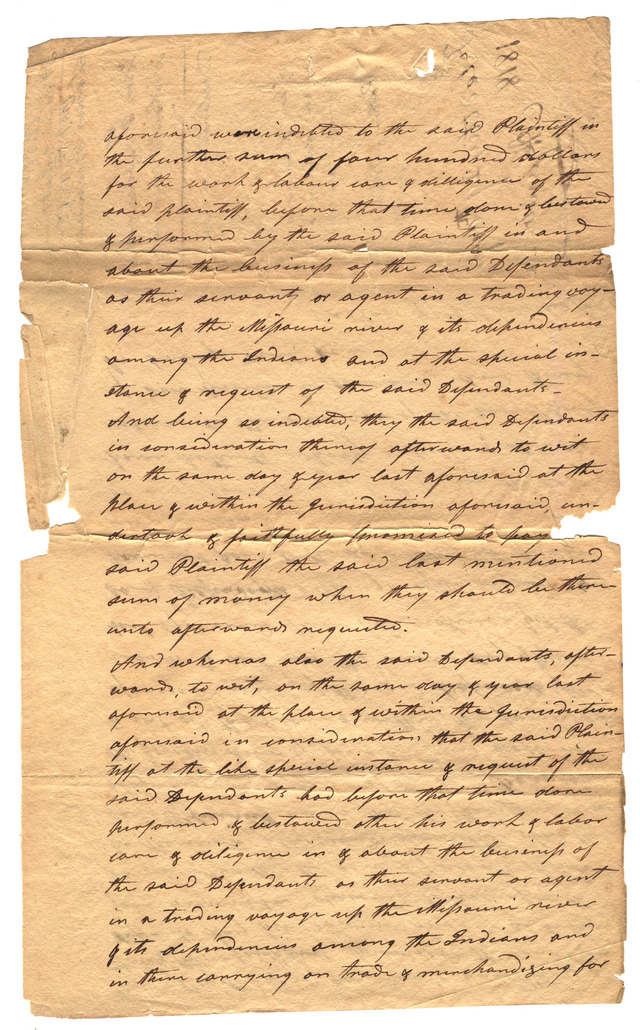 1818
aforesaid were indebted to the said Plaintiff in
the further sum of four hundred dollars
for the work & labour care & dilligence of the
said plaintiff, before that time done & bestowed
& performed by the said Plaintiff in and
about the business of the said Defendants
as their servant or agent in a trading voy-
age up the Missouri river & its dependencies
among the Indians and at the special in-
stance & request of the said Defendants—
And being so indebted, they the said Defendants
in consideration thereof afterwards to wit
on the same day & year last aforesaid at the
place & within the Jurisdiction aforesaid un-
dertook & faithfully promised to pay
said Plaintiff the said last mentioned
sum of money when they should be there-
unto afterwards requested.
And whereas also the said Defendants, after-
wards, to wit, on the same day & year last
aforesaid at the place & within the Jurisdiction
aforesaid in consideration that the said Plain-
tiff at the like special instance & request of the
said Defendants had before that time done
performed & bestowed other his work & labor
care & diligence in & about the business of
the said Defendants as their servant or agent
in a trading voyage up the Missouri river
& its dependencies among the Indians and
in there carrying on trade & merchandizing for